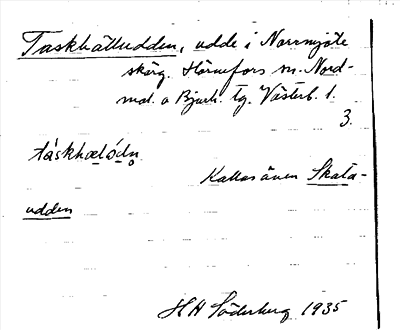 Taskhälludden, udde i Norrmjöle
skärg. Hörnefors sn. Nord-
mal. o Bjurh. tg. Västerb. l.
3.
táskhælódn̥
Kallas även Skata-
udden
H H Söderberg 1935